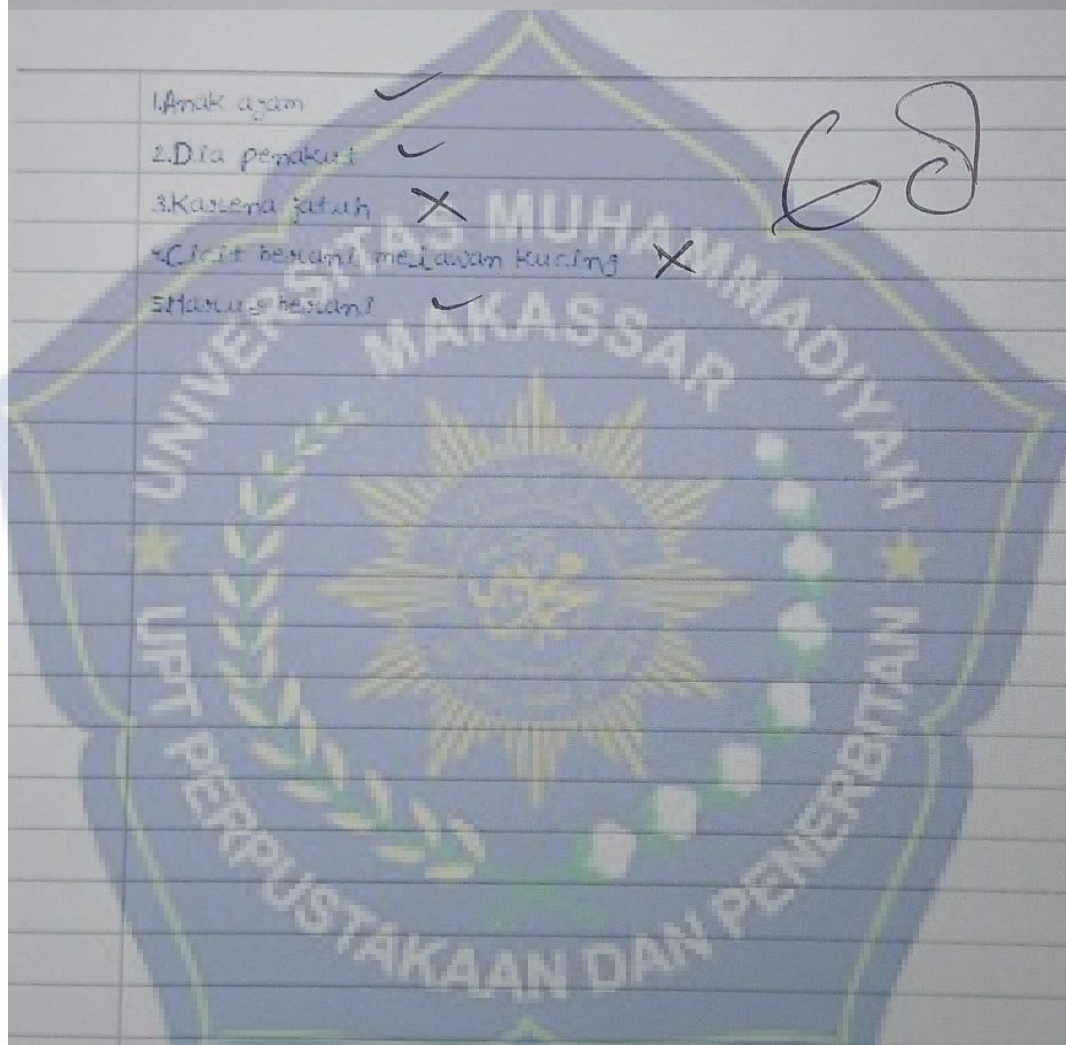 1.Anak ayam
2.Dia penakut
3.Karena jatuh
4.Cicit berani melawan kucing
5.Harus berani
68
UNIVERSITAS MUHAMMADIYAH
MAKASSAR
UPT PERPUSTAKAAN DAN PENERBITAN